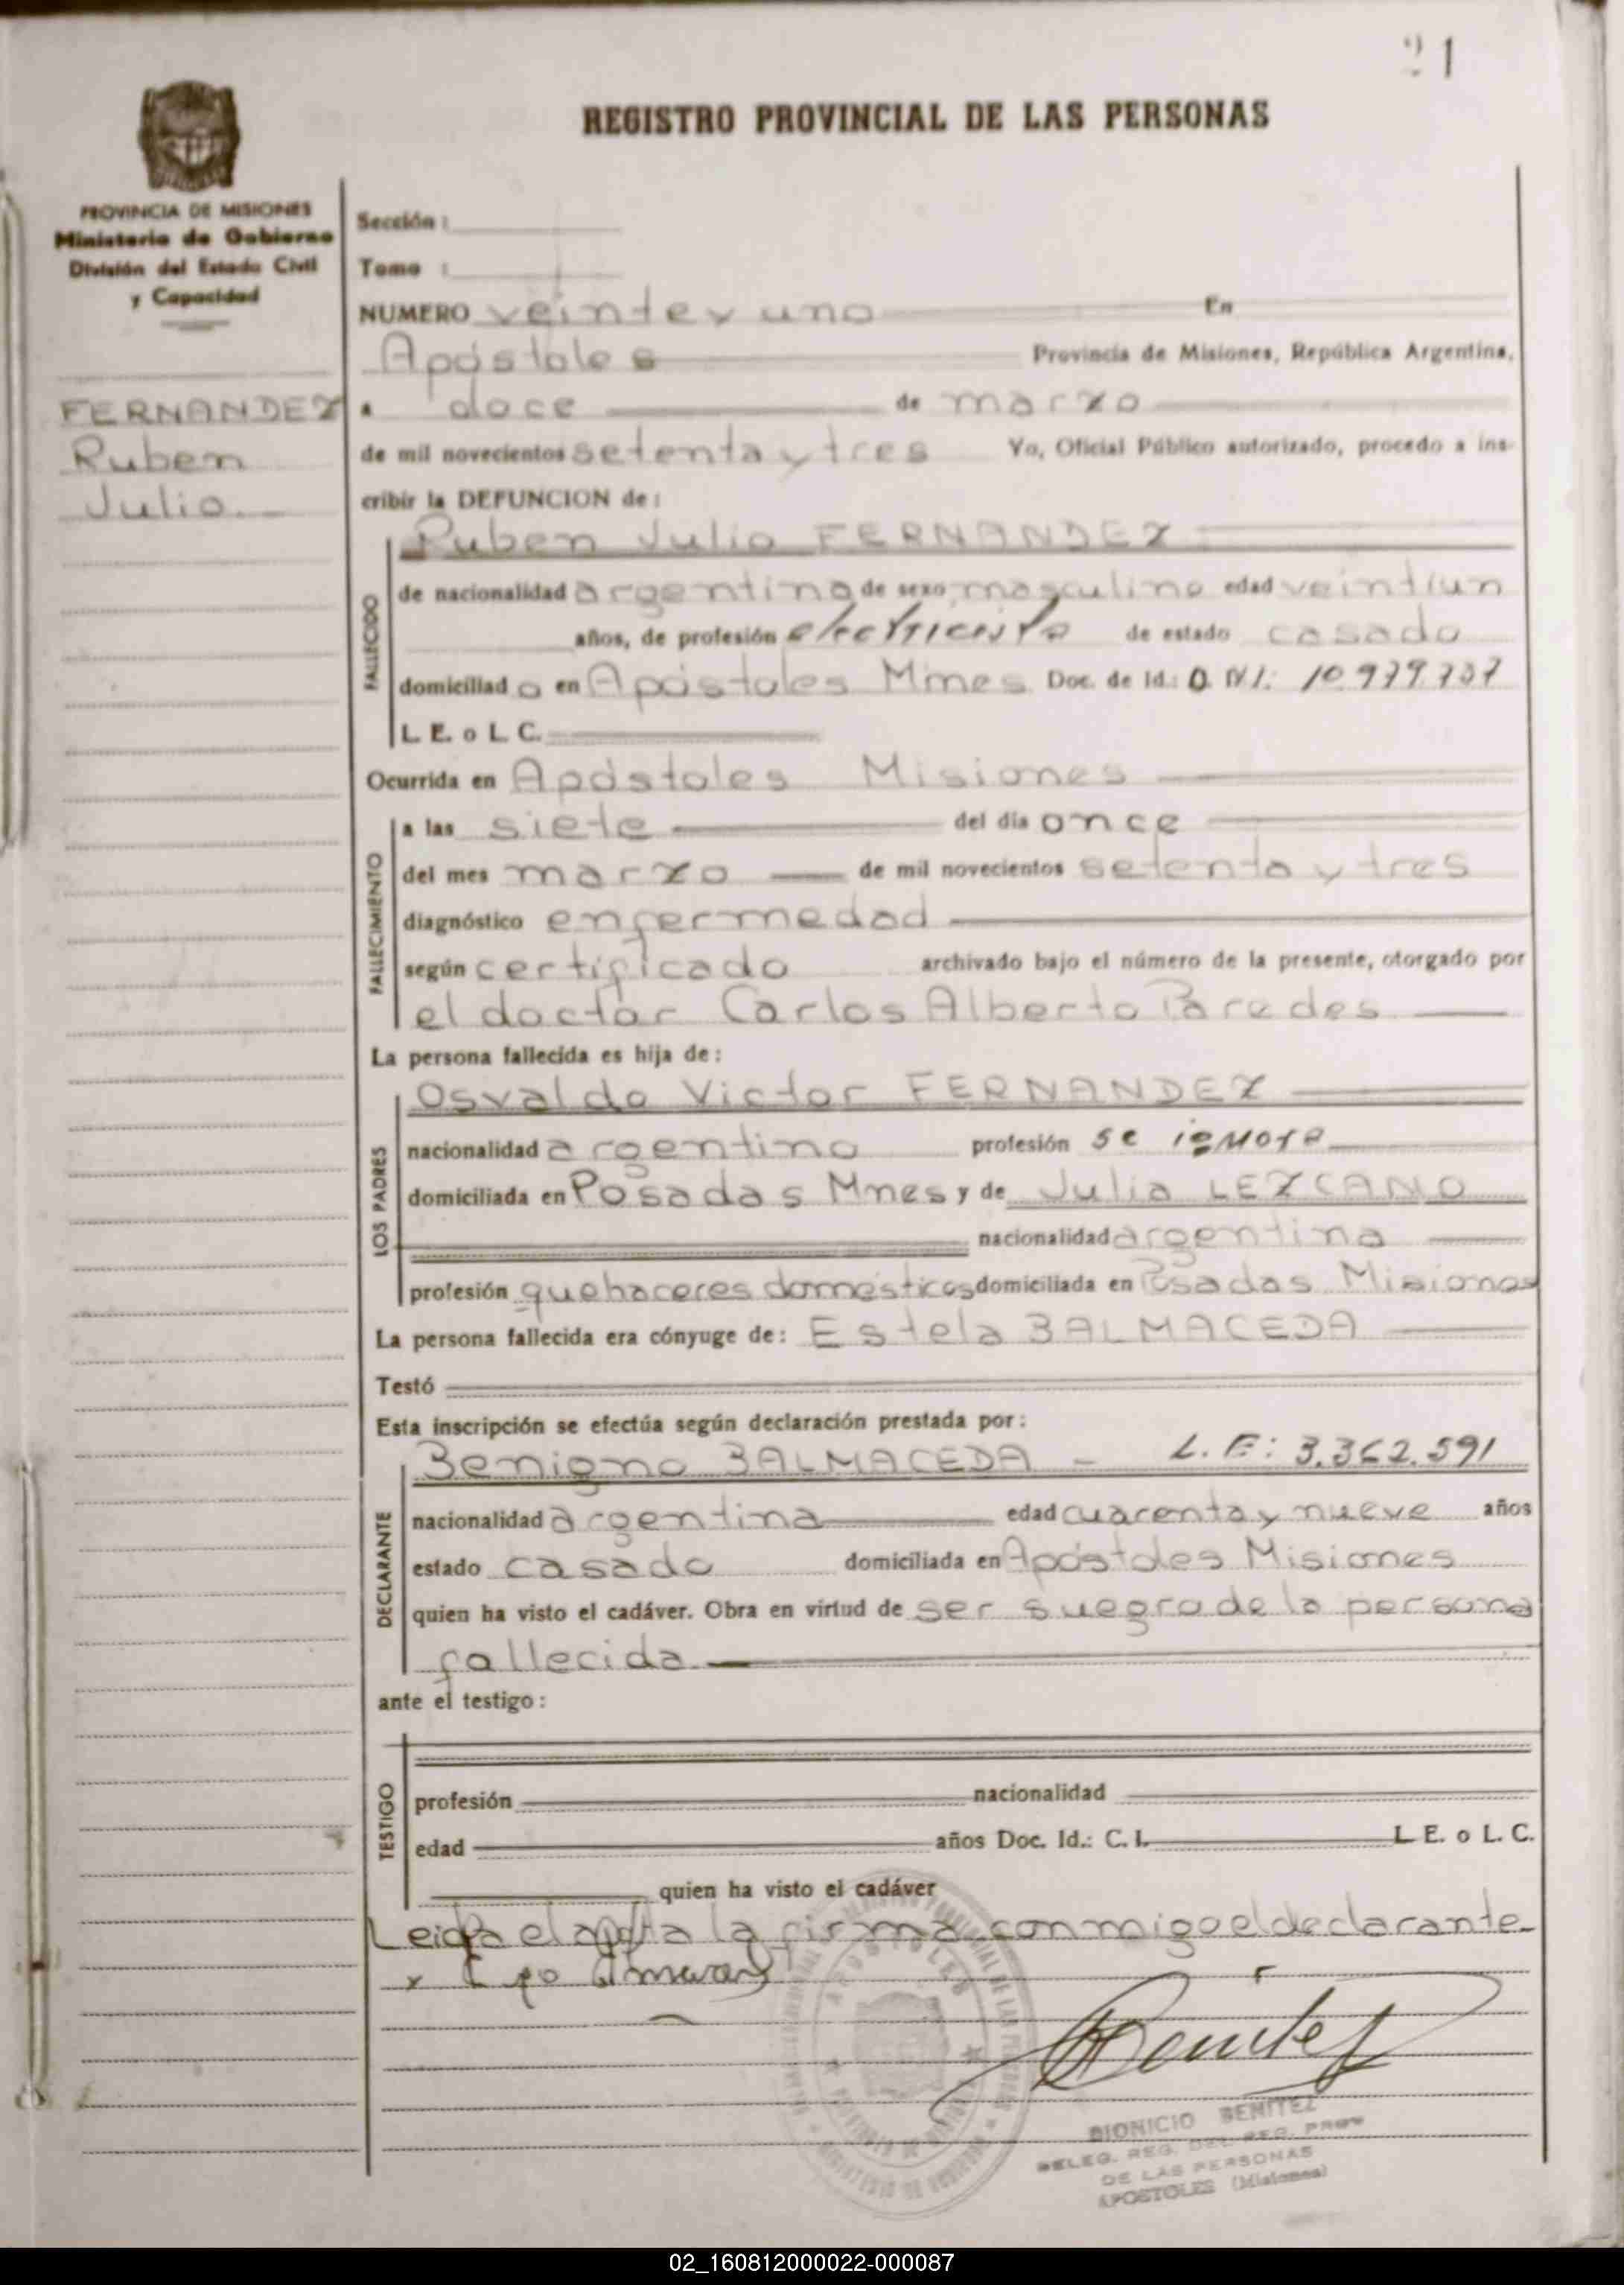 21
REGISTRO PROVINCIAL DE LAS PERSONAS
PROVINCIA DE MISIONES
Ministerio de Gobierno
División del Estado Civil
y Capacidad
FERNANDEZ
Ruben
Julio.
Sección :
Tomo :
NUMERO veinte y uno En
Apóstoles Provincia de Misiones, República Argentina,
a doce de marzo
de mil novecientos setenta y tres Yo, Oficial Público autorizado, procedo a ins-
cribir la DEFUNCION de :
Ruben Julio FERNANDEZ
FALLECIDO
de nacionalidad argentina de sexo masculino edad veintiun
años, de profesión electricista de estado casado
domiciliado en Apóstoles Mnes Doc. de Id.: D.N.I: 10.979.737
L E. o L C.
Ocurrida en Apóstoles Misiones
FALLECIMIENTO
a las siete del día once
del mes marzo de mil novecientos setenta y tres
diagnóstico enfermedad
según certificado archivado bajo el número de la presente, otorgado por
el doctor Carlos Alberto Paredes
La persona fallecida es hija de :
LOS PADRES
Osvaldo Victor FERNANDEZ
nacionalidad argentino profesión se ignora
domiciliada en Posadas Mnes y de Julia LEZCANO
nacionalidad argentina
profesión quehaceres domésticos domiciliada en Posadas Misiones
La persona fallecida era cónyuge de : Estela BALMACEDA
Testó
Esta inscripción se efectúa según declaración prestada por :
DECLARANTE
Benigno BALMACEDA - L. E: 3.362.591
nacionalidad argentina edad cuarenta y nueve años
estado casado domiciliada en Apóstoles Misiones
quien ha visto el cadáver. Obra en virtud de ser suegro de la persona
fallecida
ante el testigo :
TESTIGO
profesión nacionalidad
edad años Doc. Id.: C. I. L E. o L. C.
quien ha visto el cadáver
Leida el acta la firma conmigo el declarante
Benitez
APOSTOLES
DIONICIO BENITEZ
DELEG. REG. DEL REG. PROV
DE LAS PERSONAS
APOSTOLES (Misiones)
02_160812000022-000087